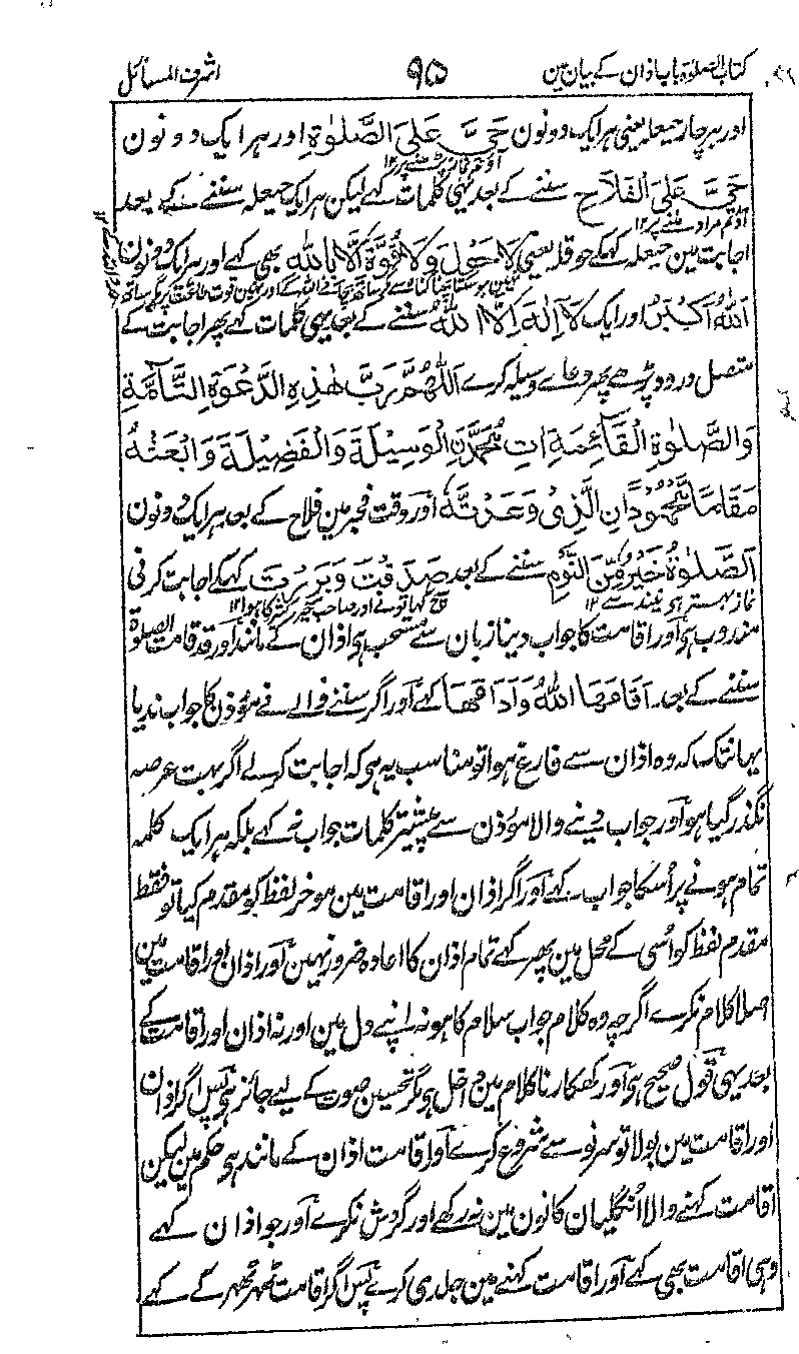 کتاب الصلوٰۃ باب اذان کے بیان مین ۹۵ اشرف المسائل
اور ہر چار حیعلہ یعنی ہر ایک دونون حَیَّ عَلَی الصَّلٰوۃِ اور ہر ایک دونون
آؤ تم نماز پڑھنے پر ۱۲
حَیَّ عَلَی الْفَلَاح سننے کے بعد یہی کلمات کہے لیکن ہر ایک حیعلہ سننے کے بعد
آؤ تم مراد ملنے پر ۱۲
اجابت مین حیعلہ کہکے حوقلہ یعنی لَاحَوْلَ وَلَاقُوَّۃَ اِلَّا بِاللہِ بھی کہے اور ہر ایک دونون
اَللہُ اَکْبَرُ اور ایک لَآ اِلٰہَ اِلَّا اللہُ سننے کے بعد یہی کلمات کہے پھر اجابت کے
متصل درود پڑھے پھر دعاے وسیلہ کرے اَللّٰھُمَّ رَبَّ ھٰذِہِ الدَّعْوَۃِ التَّآمَّۃِ
وَالصَّلٰوۃِ الْقَآئِمَۃِ اٰتِ مُحَمَّدَنِ الْوَسِیْلَۃَ وَالْفَضِیْلَۃَ وَابْعَثْہُ
مَقَامًا مَّحْمُوْدَانِ الَّذِیْ وَعَدْتَّہٗ اور وقت فجر مین فلاح کے بعد ہر ایک دونون
اَلصَّلٰوۃُ خَیْرٌ مِّنَ النَّوْمِ سننے کے بعد صَدَقْتَ وَبَرَرْتَ کہکے اجابت کرنی
نماز بہتر ہی نیند سے ۱۲ سچ کہا تونے اور صاحب خیر کثیر کا ہوا ۱۲
مندوب ہی اور اقامت کا جواب دینا زبان سے مستحب ہی اذان کے مانند اور قد قامت الصلوۃ
سننے کے بعد اَقَامَھَا اللہُ وَاَدَامَھَا کہے اور اگر سننے والے نے مؤذن کا جواب ندیا
یہانتک کہ وہ اذان سے فارغ ہوا تو مناسب یہ ہی کہ اجابت کر لے اگر بہت عرصہ
نگذر گیا ہو اور جواب دینے والا مؤذن سے پیشتر کلمات جواب نہ کہے بلکہ ہر ایک کلمہ
تمام ہونے پر اُسکا جواب کہے اور اگر اذان اور اقامت مین موخر لفظ کو مقدم کیا تو فقط
مقدم لفظ کو اُسی کے محل مین پھر کہے تمام اذان کا اعادہ ضرور نہین اور اذان اور اقامت مین
اصلا کلام نکرے اگرچہ وہ کلام جواب سلام کا ہو نہ اپنے دل مین اور نہ اذان اور اقامت کے
بعد یہی قول صحیح ہی اور کھکارنا کلام مین داخل ہی مگر تحسین صوت کے لیے جائز ہی پس اگر اذان
اور اقامت مین بولا تو سر نو سے شروع کرے اور اقامت اذان کے مانند ہی حکم مین لیکن
اقامت کہنے والا اُنگلیان کانون مین نہ رکھے اور گردش نکرے اور جو اذان کہے
وہی اقامت بھی کہے اور اقامت کہنے مین جلدی کرے پس اگر اقامت ٹھہر ٹھہر کے کہے